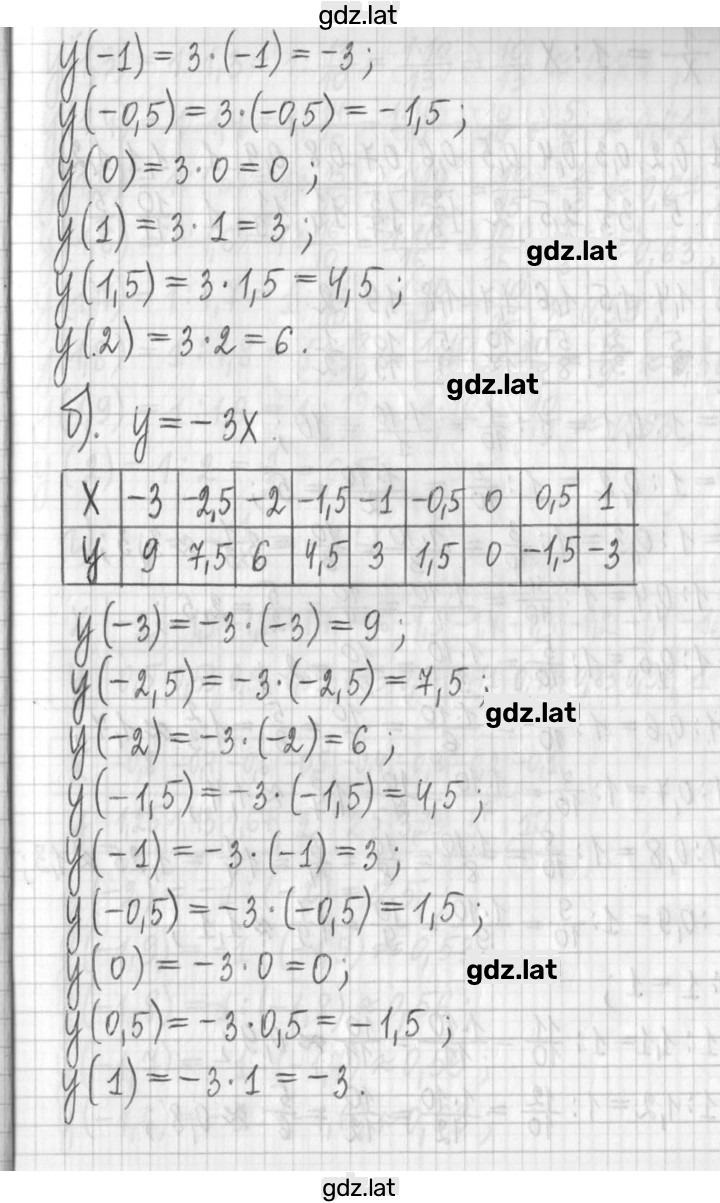 gdz.lat
y(-1) = 3·(-1) = -3;
y(-0,5) = 3·(-0,5) = -1,5;
y(0) = 3·0 = 0;
y(1) = 3·1 = 3;
gdz.lat
y(1,5) = 3·1,5 = 4,5;
y(2) = 3·2 = 6.
gdz.lat
б). y = -3x.
x -3 -2,5 -2 -1,5 -1 -0,5 0 0,5 1
y 9 7,5 6 4,5 3 1,5 0 -1,5 -3
y(-3) = -3·(-3) = 9;
y(-2,5) = -3·(-2,5) = 7,5;
gdz.lat
y(-2) = -3·(-2) = 6;
y(-1,5) = -3·(-1,5) = 4,5;
y(-1) = -3·(-1) = 3;
y(-0,5) = -3·(-0,5) = 1,5;
y(0) = -3·0 = 0;
gdz.lat
y(0,5) = -3·0,5 = -1,5;
y(1) = -3·1 = -3.
gdz.lat